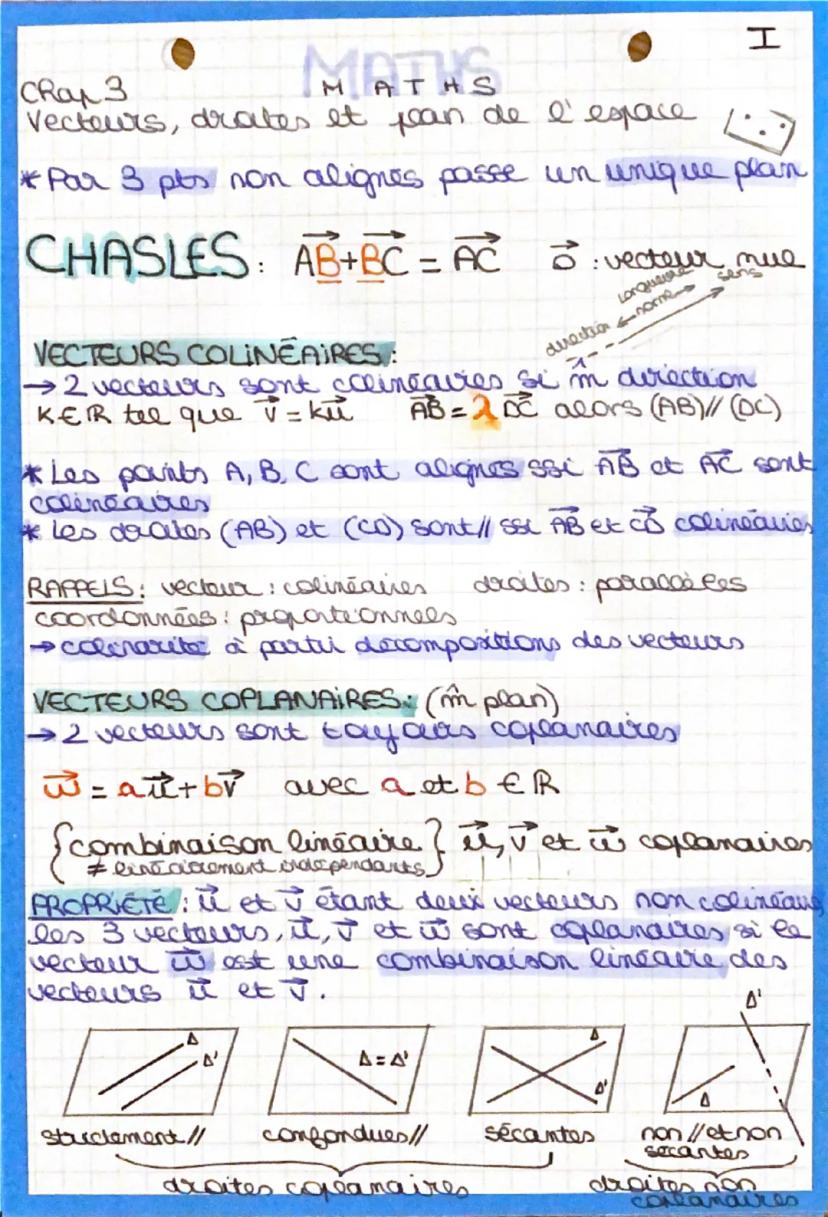 I
MATHS
MATHS
Chap 3
Vecteurs, droites et plan de l'espace
* Par 3 pts non alignés passe un unique plan
CHASLES : AB→ + BC→ = AC→ 0→ : vecteur nul
direction longueur norme sens
VECTEURS COLINÉAIRES :
→ 2 vecteurs sont colinéaires si m̂ direction
K ∈ ℝ tel que v→ = ku→ AB→ = λ DC→ alors (AB) // (DC)
* Les points A, B, C sont alignés ssi AB→ et AC→ sont
colinéaires
* Les droites (AB) et (CD) sont // ssi AB→ et CD→ colinéaires
RAPPELS : vecteur : colinéaires droites : parallèles
coordonnées : proportionnels
→ colinarité à partir décompositions des vecteurs
VECTEURS COPLANAIRES : (m̂ plan)
→ 2 vecteurs sont toujours coplanaires
w→ = au→ + bv→ avec a et b ∈ ℝ
{combinaison linéaire} u→, v→ et w→ coplanaires
≠ linéairement indépendants
PROPRIÉTÉ : u→ et v→ étant deux vecteurs non colinéaires
les 3 vecteurs, u→, v→ et w→ sont coplanaires si le
vecteur w→ est une combinaison linéaire des
vecteurs u→ et v→.
Δ Δ' Δ = Δ' Δ Δ' Δ Δ'
strictement // confondues // sécantes non // et non
sécantes
droites coplanaires droites non
coplanaires